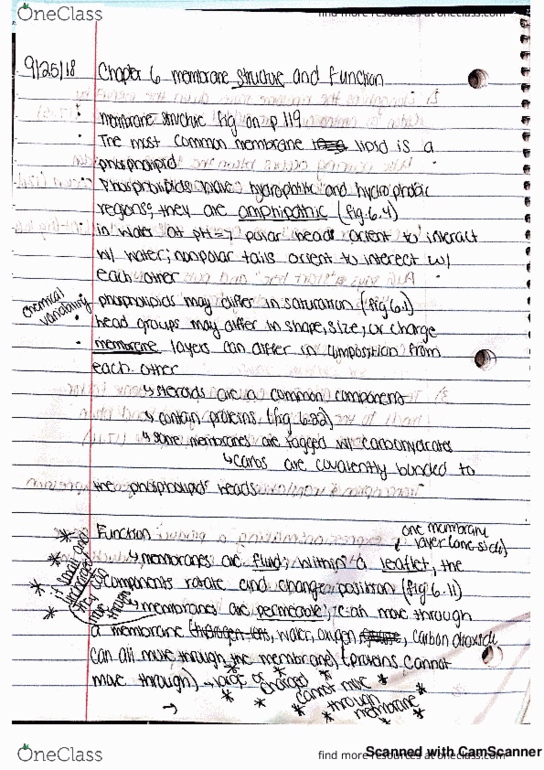 OneClass
find more resources at oneclass.com
9/25/18 Chapter 6 membrane structure and function
• membrane structure fig on p 119
• The most common membrane lipid is a
phospholipid
• Phospholipids have hydrophilic and hydrophobic
regions; they are amphipathic (fig 6.4)
in water at pH=7 polar heads orient to interact
w/ water; nonpolar tails orient to interect w/
each other
chemical variability
• phospholipids may differ in saturation (fig 6.)
• head groups may differ in shape, size, or charge
• membrane layers can differ in composition from
each other
↳ steroids are a common component
↳ contain proteins (fig 6.)
↳ some membranes are tagged w/ carbohydrates
↳ carbs are covalently bonded to
the phospholipid heads
one membrane
layer (one side)
Function
↳ membranes are fluid; within a leaflet, the
components rotate and change position (fig 6.11)
↳ membranes are permeable; can move through
a membrane (water, oxygen, carbon dioxide
can all move through the membrane) (protons cannot
move through) → large or
charged
cannot move
through
membrane
OneClass
find more resources at oneclass.com
Scanned with CamScanner